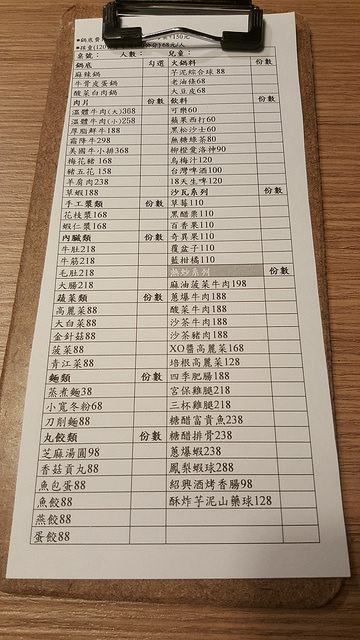 桌號： 人數： 兒童：
鍋底 勾選 火鍋料 份數
麻辣鍋 芋泥綜合球 88
牛骨皮蛋鍋 老油條68
酸菜白肉鍋 大豆皮68
肉片 份數 飲料 份數
溫體牛肉(大)368 可樂60
溫體牛肉(小)258 蘋果西打60
厚脂鮮牛188 黑松沙士60
霜降牛298 無糖綠茶80
美國牛小排368 柳橙愛洛神90
梅花豬 168 烏梅汁120
豬五花 158 台灣啤酒100
羊肩肉238 18天生啤120
草蝦188 沙瓦系列 份數
手工漿類 份數 草莓110
花枝漿168 黑醋栗110
蝦仁漿168 百香果110
內臟類 份數 奇異果110
牛肚218 覆盆子110
牛筋218 藍柑橘110
毛肚218 熱炒系列 份數
大腸218 麻油菠菜牛肉198
蔬菜類 份數 蔥爆牛肉188
高麗菜88 酸菜牛肉188
大白菜88 沙茶牛肉188
金針菇88 沙茶豬肉188
菠菜88 XO醬高麗菜168
青江菜88 培根高麗菜128
麵類 份數 四季肥腸188
蒸煮麵38 宮保雞腿218
小寬冬粉68 三杯雞腿218
刀削麵88 糖醋富貴魚238
丸餃類 份數 糖醋排骨238
芝麻湯圓98 蔥爆蝦238
香菇貢丸88 鳳梨蝦球288
魚包蛋88 紹興酒烤香腸98
魚餃88 酥炸芋泥山藥球128
燕餃88
蛋餃88